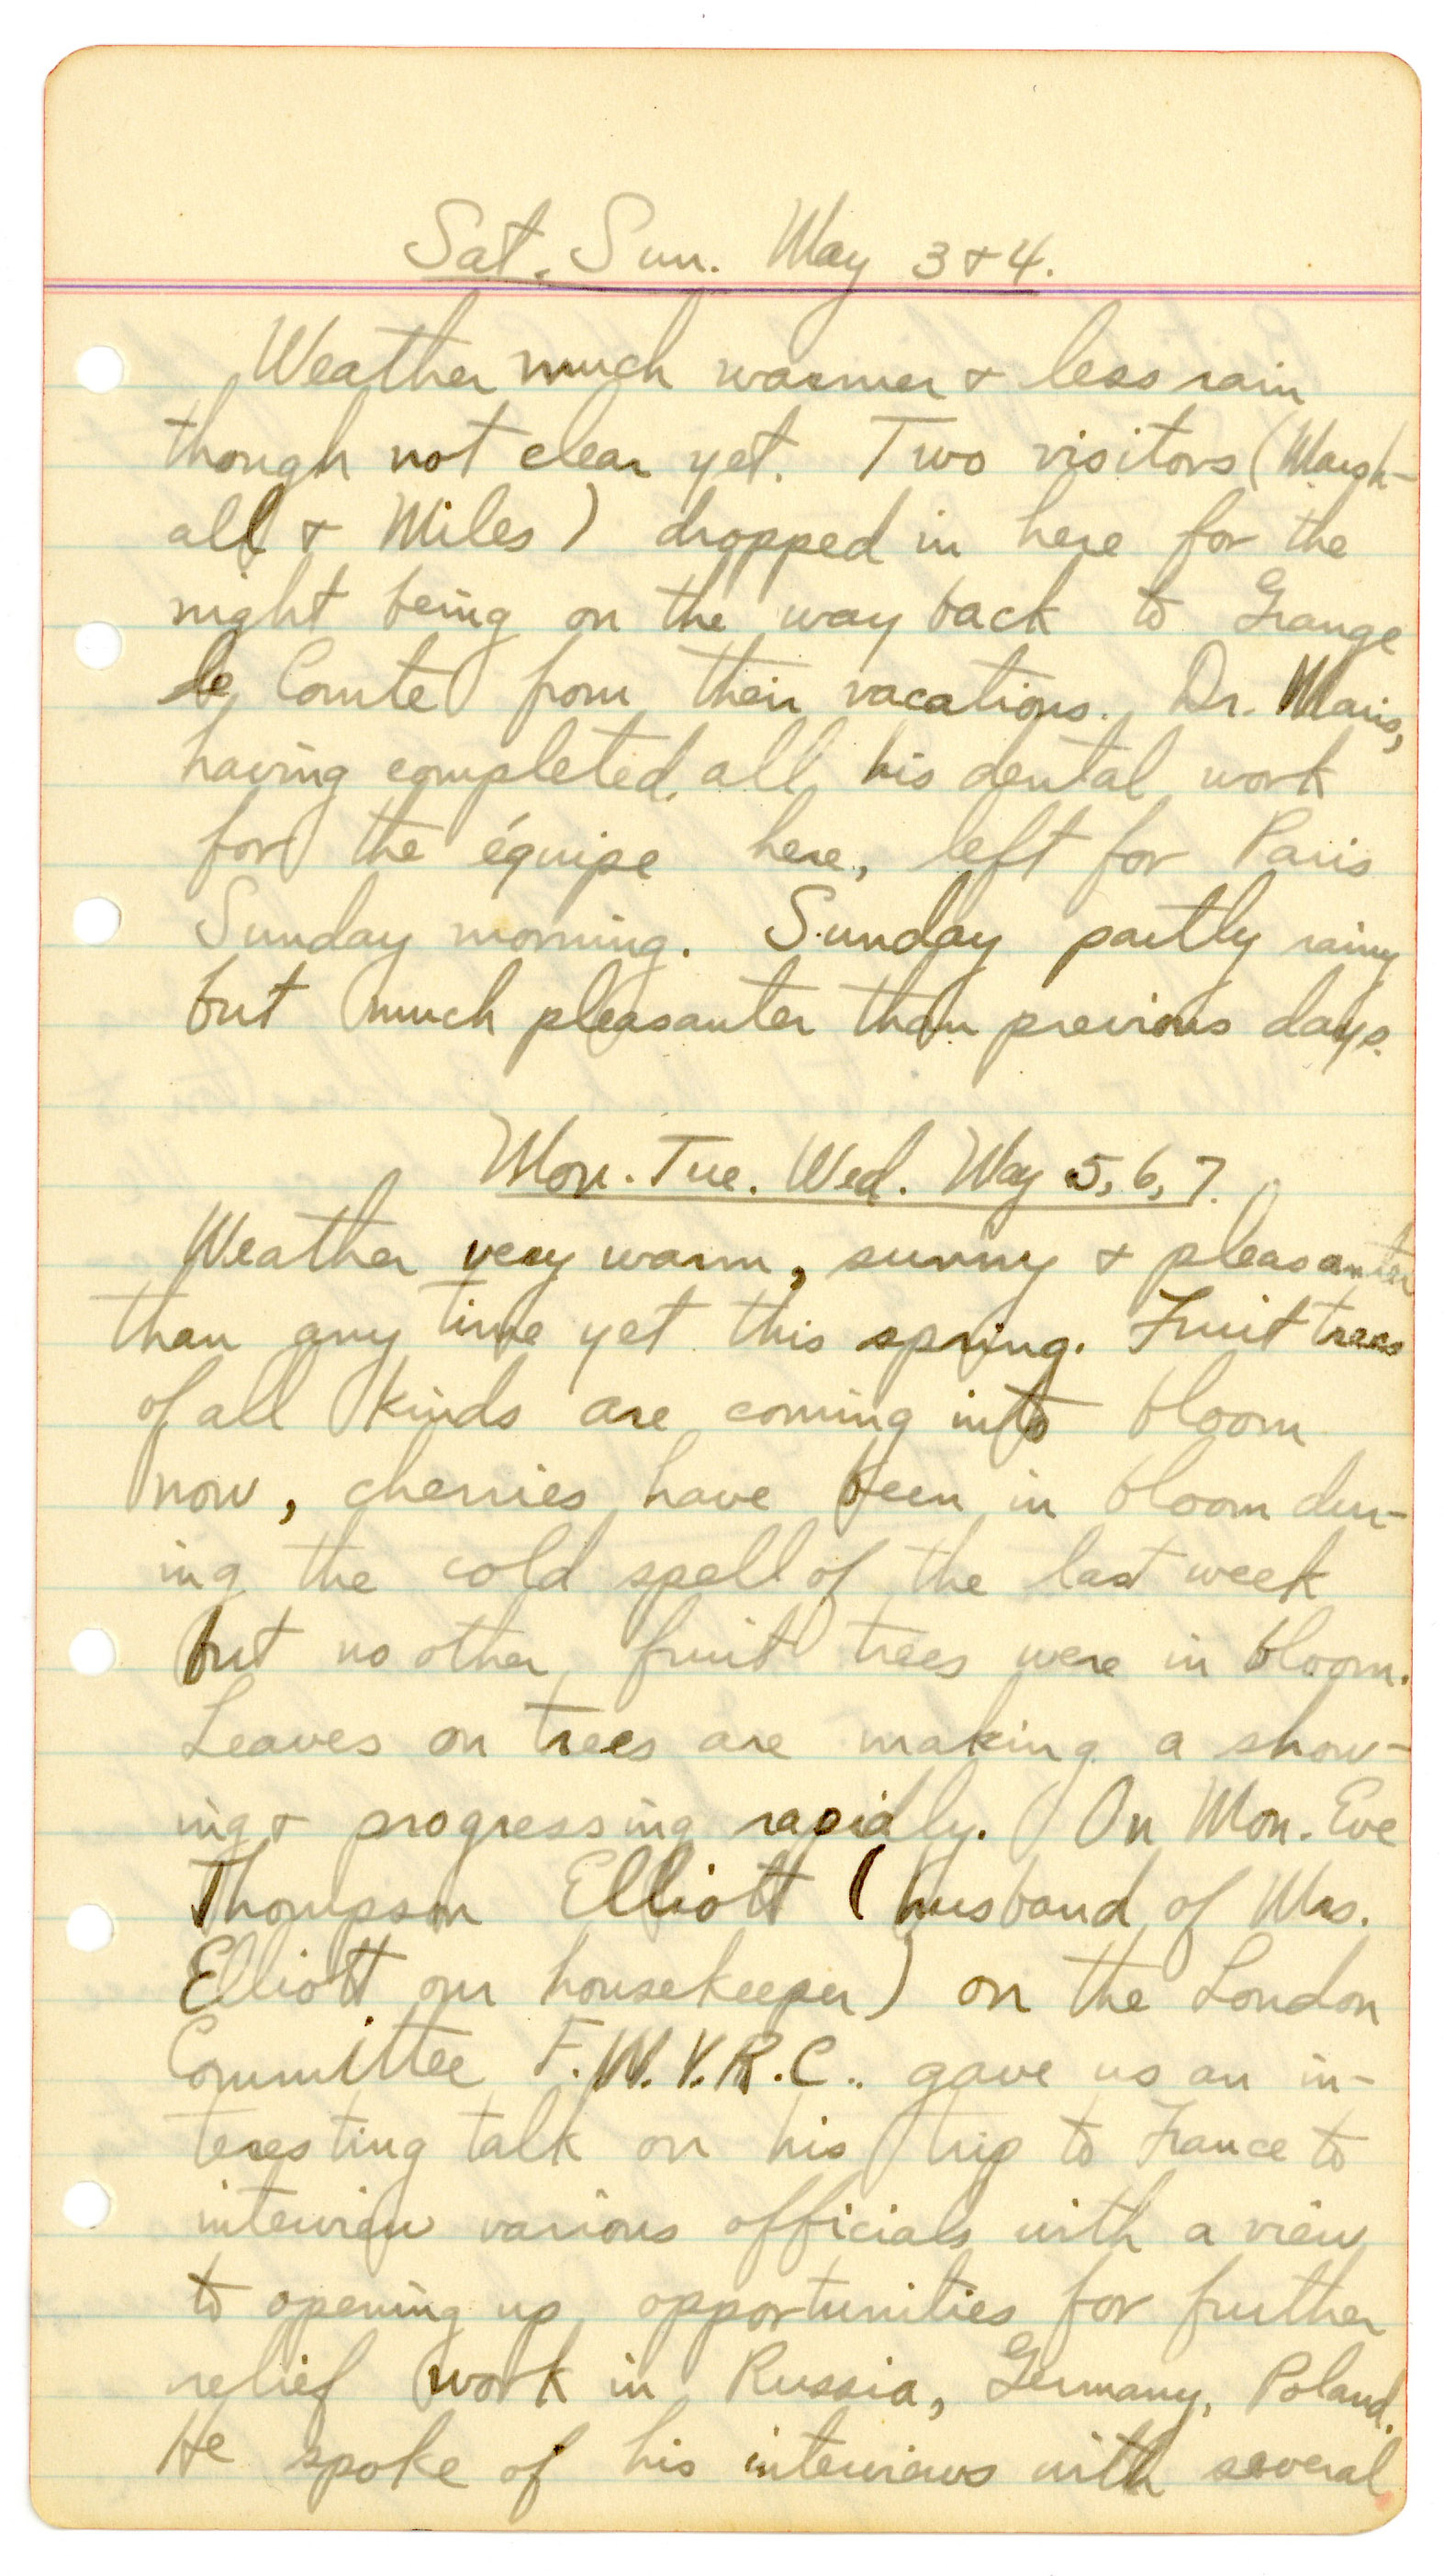 Sat. Sun. May 3 & 4.
Weather much warmer & less rain
though not clear yet. Two visitors (Marsh-
all & Miles) dropped in here for the
night being on the way back to Grange
le Comte from their vacations. Dr. Maris,
having completed all his dental work
for the équipe here, left for Paris
Sunday morning. Sunday partly rainy
but much pleasanter than previous days.
Mon. Tue. Wed. May 5, 6, 7.
Weather very warm, sunny & pleasanter
than any time yet this spring. Fruit trees
of all kinds are coming into bloom
now, cherries have been in bloom dur-
ing the cold spell of the last week
but no other fruit trees were in bloom.
Leaves on trees are making a show-
ing & progressing rapidly. On Mon. Eve
Thompson Elliott (husband of Mrs.
Elliott our housekeeper) on the London
Committee F.W.V.R.C.. gave us an in-
teresting talk on his trip to France to
interview various officials with a view
to opening up opportunities for further
relief work in Russia, Germany, Poland.
He spoke of his interviews with several